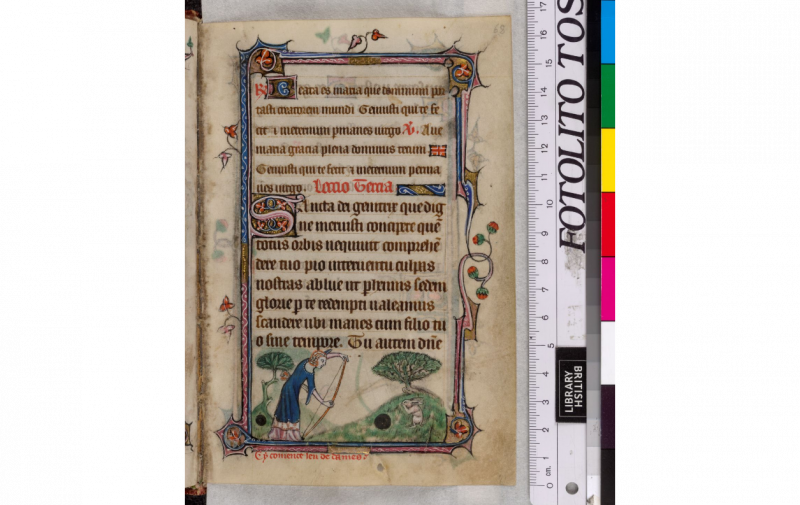 68
R Beata es maria que dominum por
tasti creatorem mundi Genuisti qui te fe
cit ⁊ in eternum ꝑmanes uirgo. V̷. Aue
maria gracia plena dominus tecum
Genuisti qui te fecit ⁊ in eternum perma
nes uirgo. Lectio Tercia
Sancta dei genitrix que dig
ne meruisti concipere quē
totus orbis nequiuit comprehē
dere tuo pio interuentu culpas
nostras ablue ut perhennis sedem
glorie ꝑ te redempti ualeamus
scandere ubi manes cum filio tu
o sine tempore. Tu autem dn̄e
Cy comence leu de dames
FOTOLITO TOS
BRITISH
LIBRARY
0 cm. 1 2 3 4 5 6 7 8 9 10 11 12 13 14 15 16 17